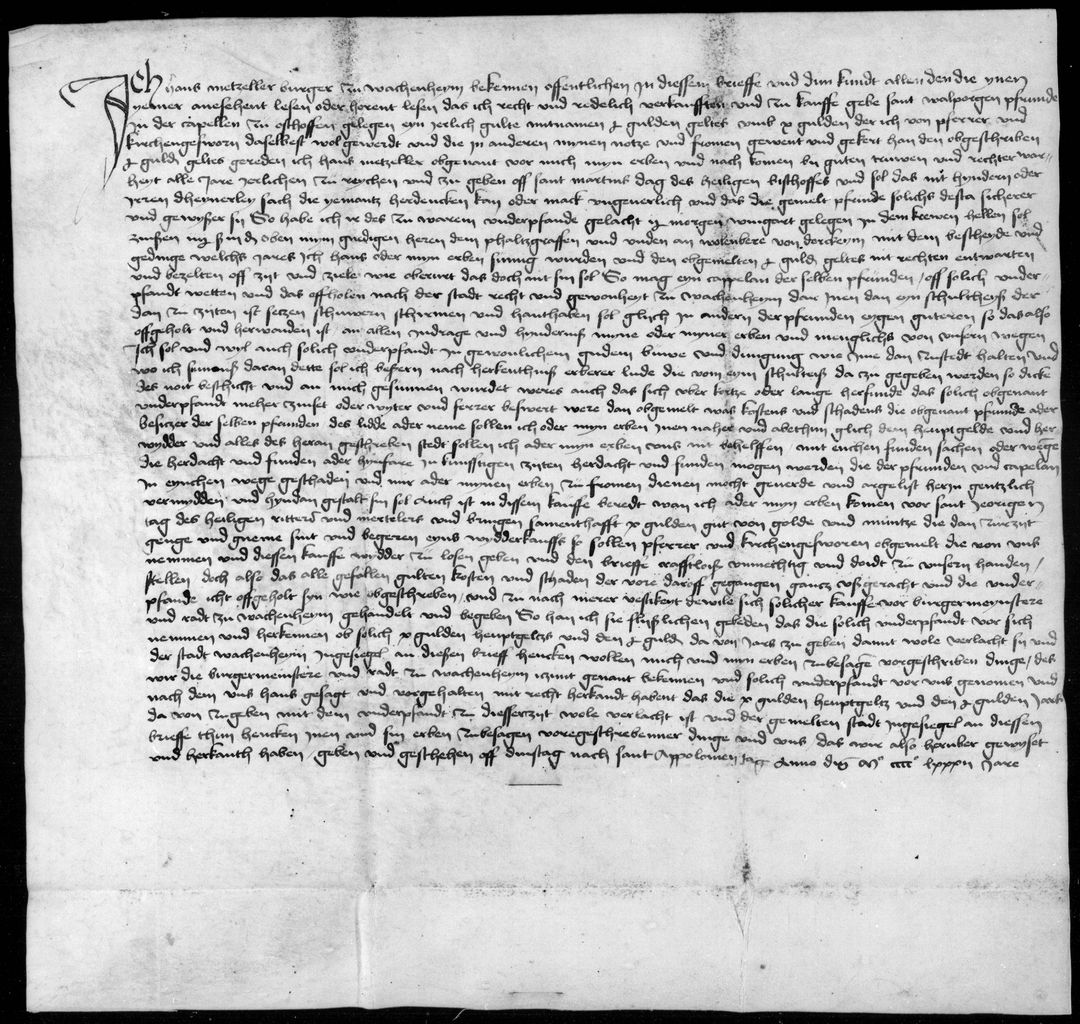 Ich hans metzeller burger zu wachenheym bekennen offentlichen in diessem brieffe und dun kundt allen den die ynen
ymer ansehent lesen oder horent lesen das ich recht und redelich verkaufften und zu kauffe gebe sant walporgen pfrunde
in der capellen zu osthoffen gelegen eyn jerlich gulte mitnamen ½ gulden geltes umb x gulden der ich von pferrer und
kirchengesworn daselbest wol gewerdt und die in anderen mynen notze und fromen gewent und gekert han den obgeschreben
½ guld geltes gereden ich hans metzeller obgenant vor mich myn erben und nach komen bii guten truwen und rechter war-
heyt alle jare jerlichen zu reychen und zu geben off sant martins dag des heiligen bisthoffes und sol das nit hyndern oder
irren dheynerley sach die yemantz herdencken kan oder mack ungeverlich und das die gemelt pfrunde solichs desta sicherer
und gewysser sii So habe ich ir des zu warem underpfande gelacht ij morgen wingart gelegen in dem hellen sol
zinssen oben mym gnedigen heren dem phaltzgraffen und unden an von dorckeym mit dem bescheyde und
gedinge welchs jares ich hans oder myn erben sumig wurden und den obgemelten ½ guld geltes nit rechten entwarten
und bezelten off ziit und ziele wie oberurt das doch nit sin sol So mag eyn cappelan der selben pfrunden off solich under-
pfandt wetten und das offholen nach der stadt recht und gewonheyt zu wachenheym dar inen dan eyn schultheyß der
dan zu ziiten ist setzen schuwern schirmen und hanthaben sol gliich in andern der pfrunden eygen guteren so das also
offgeholt und herwanden ist an allen indrage und hynderniß myne oder myner erben und menglichs von unsern wegen
Ich sol und wyl auch solich underpfandt in gewonlichem gudem buwe und dungung wie ime dan zustedt halten und
wo ich sumniß daran dette sol ich bessern nach herkentniß erberer lude die vom eym schulteiß da czu gegeben werden so dicke
des noit beschicht und an mich gesunnen wurdet weres auch das sich uber kortze oder lange herfunde das solich obgenant
underpfandt meher zinset oder wyter und ferrer beswert were dan obgemelt was kostens und schadens die obgenant pfrunde ader
besiczer der selben pfrunden des lidde ader neme sollen ich oder myn erben inen naher und abethun glich dem heuptgelde und her
wydder und alles des heran geschreben stedt sollen ich ader myn erben uns nit behelffen mit enchen funden sachen oder wege
die herdacht und funden ader hynfare in kunfftigen ziiten herdacht und funden mogen werden die der pfrunden und capelan
in eynchen wege geschaden und mir ader mynen erben zu fromen dienen mocht geverde und argelist herin gentzlich
vermydden und hyndan gestalt sin sol Auch ist in dissem kauffe beredt wan ich ader myn erben komen vor sant jeorigen
tag des heiligen ritters und mertelers und bringen samenthafft x gulden gut von golde und muntze die dan zurziit
genge und gneme sint und begeren eyns wydderkauffs so sollen pferrer und kirchengesworen obgemelt die von uns
nemmen und diessen kauffe wydder zu losen geben und den brieffe crafftloiß unmechtig und doidt zu unsern handen
stellen doch also das alle gefallen gulten kosten und schaden der vore daroff gegangen gancz ußgeracht und die under-
pfande icht offgeholt syn wie obgeschreben und zu nach merer vestikeyt dewile sich solicher kauffe vor burgermeynstere
und radt zu wachenheym gehandelt und begeben So han ich sie flißlichen gebeden das die solich underpfandt vor sich
nemmen und herkennen ob solich x gulden heuptgeltz und den ½ guld da von jars zu geben damit wole verlacht sii und
der stadt wachenheym ingesiegel an dießen brieff hencken wollen mich und myn erben zubesagen vorgeschriben dinge des
wir die burgermeinstere und radt zu wachenheym iczunt genant bekennen und solich underpfandt vor uns genomen und
nach dem uns hans gesagt und vorgehalten mit recht herkandt habent das die x gulden heuptgeltz und den ½ gulden jars
da von zugeben mit dem underpfandt zu diesserziit wole verlacht ist und der gemelten stadt ingesiegel an diessen
brieffe thun hencken inen und sin erben zubesagen voregeschrebenner dinge und uns das wir also haruber gewyset
und herkanth haben geben und gescheehen off dinstag nach sant Appolonien tag Anno dni Mo cccco lxxxii Jare